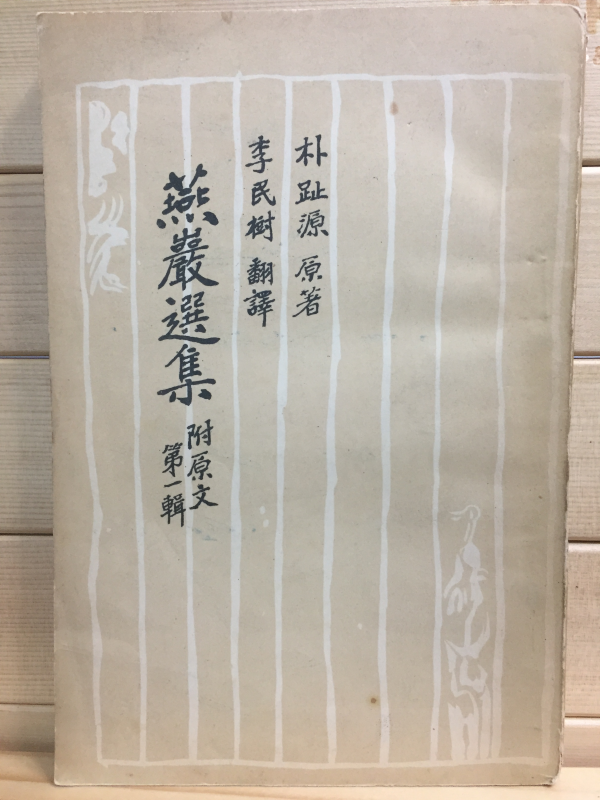 朴趾源 原著
李民樹 翻譯
燕巖選集
附原文
第一輯